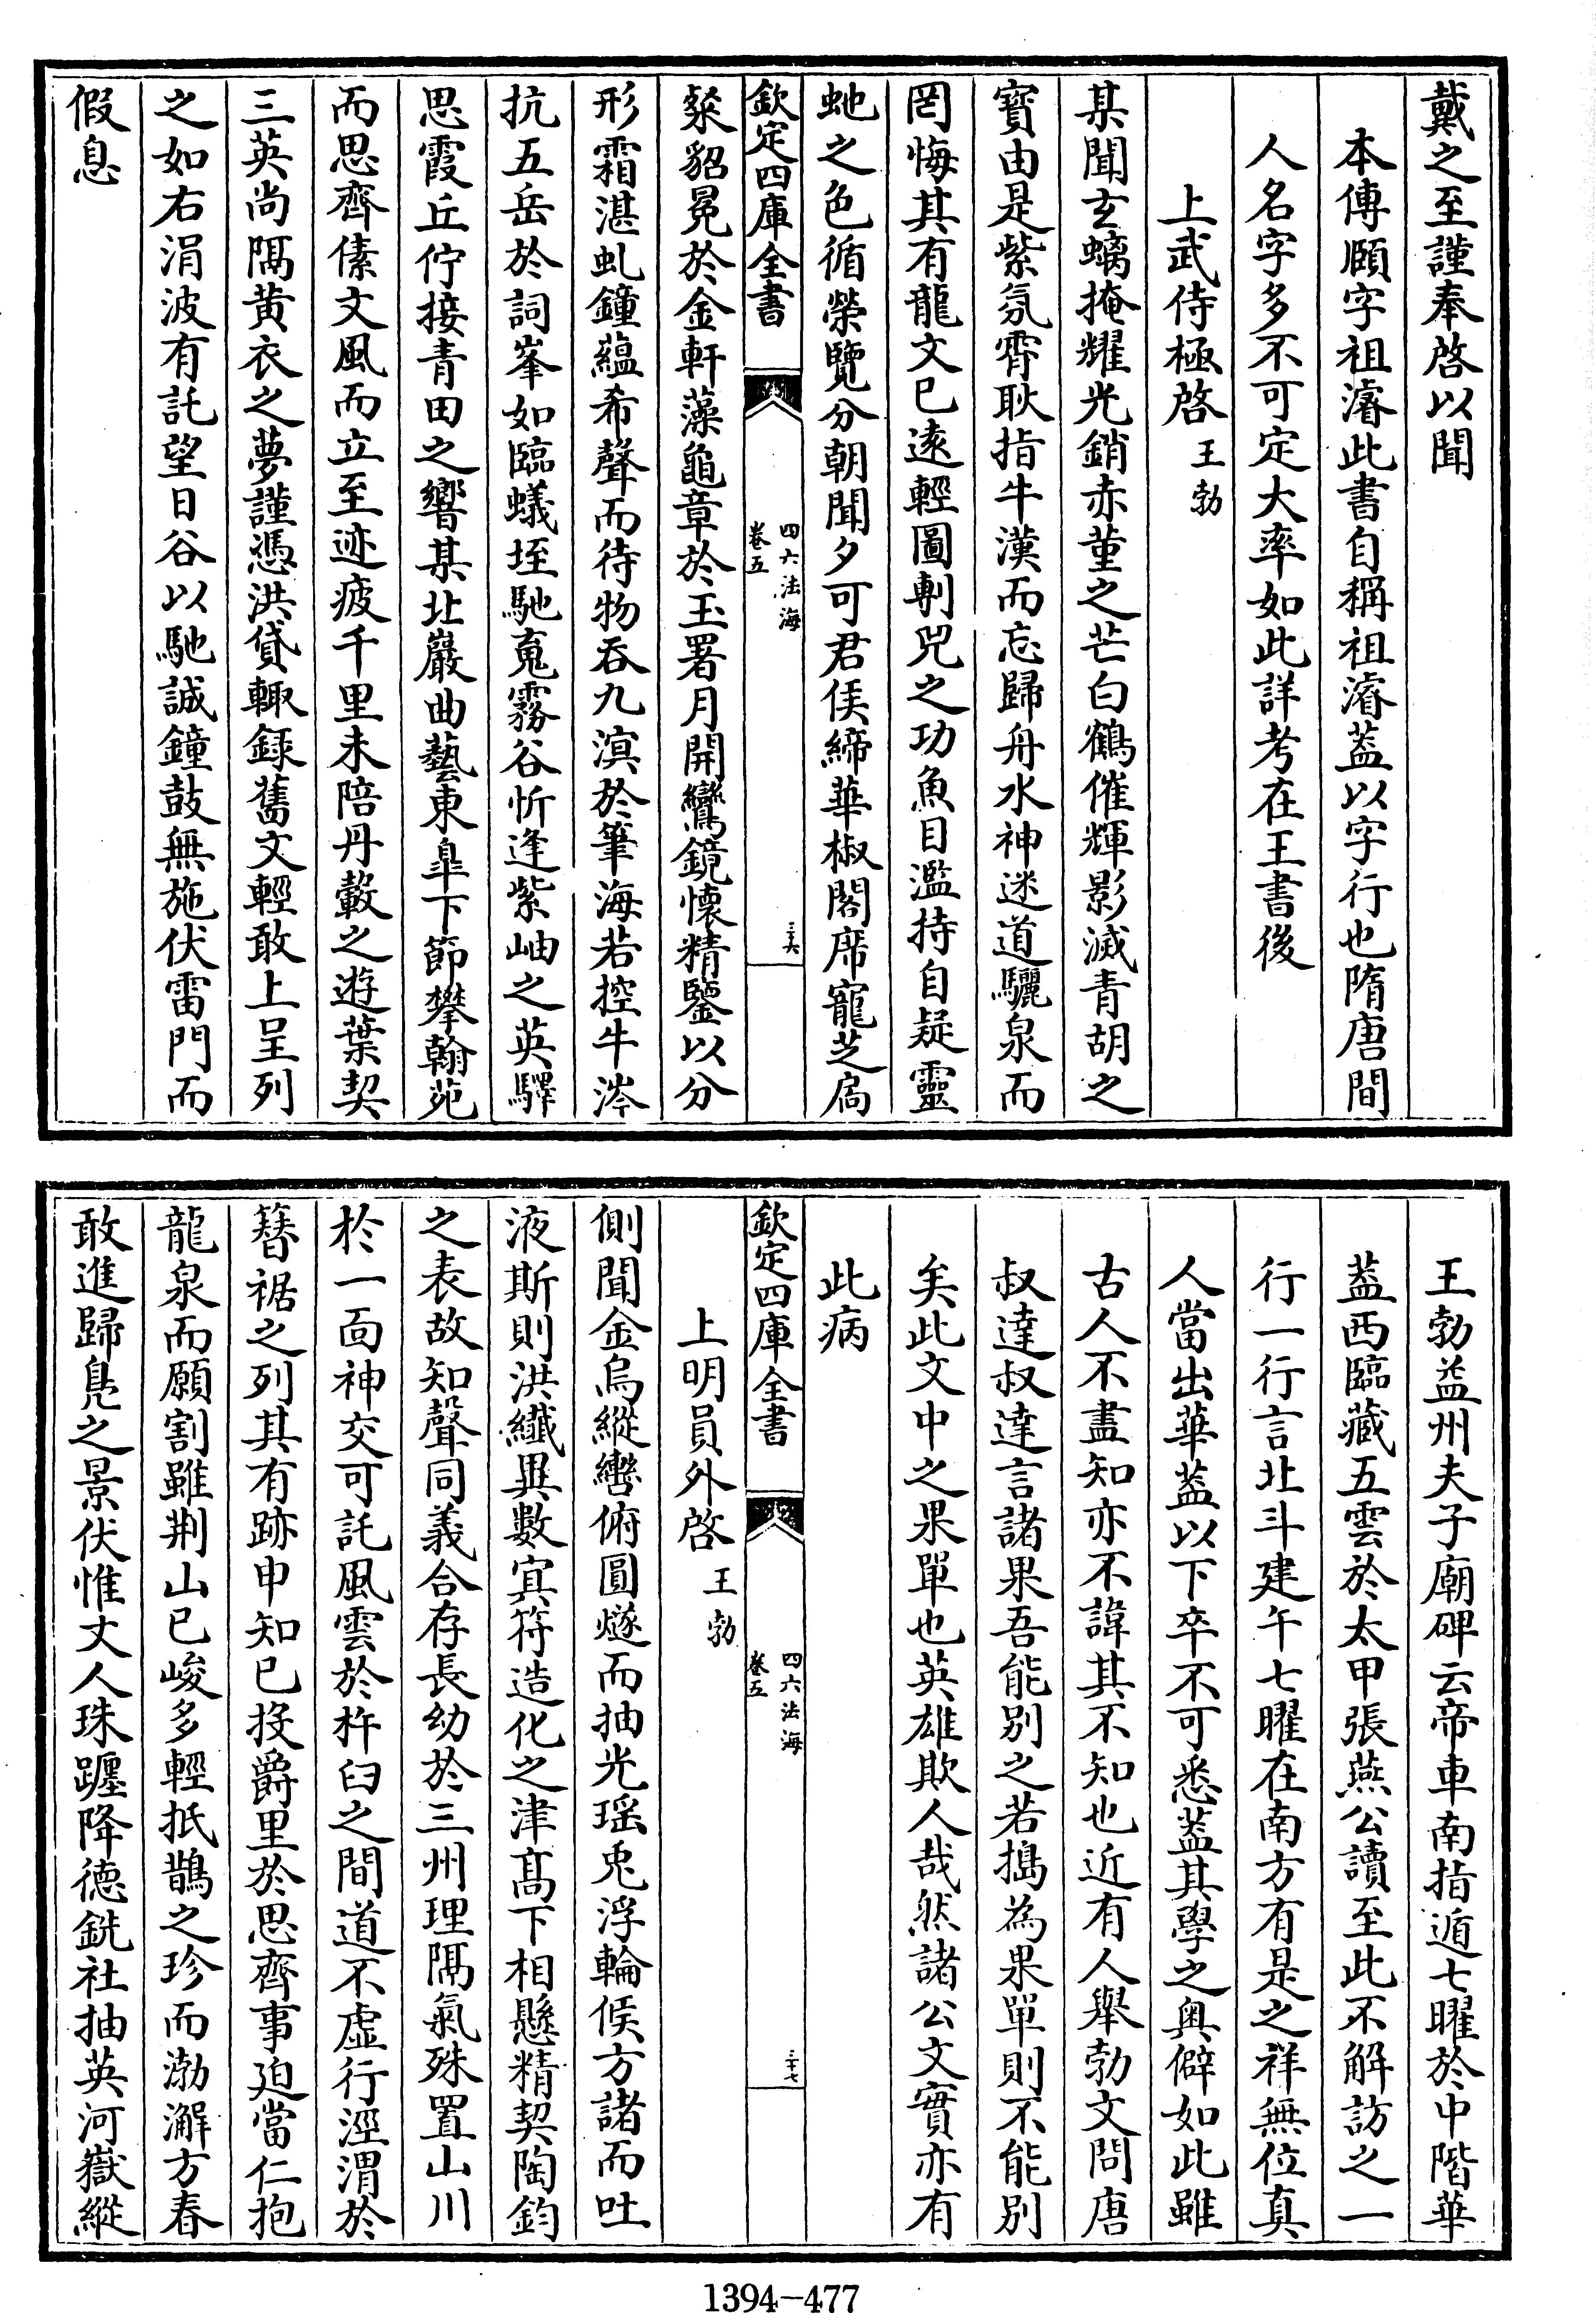 戴之至謹奉啓以聞
本傳頤字祖濬此書自稱祖濬蓋以字行也隋唐間
人名字多不可定大率如此詳考在王書後
上武侍極啓王勃
某聞玄螭掩耀光銷赤堇之芒白鶴催輝影滅青胡之
寳由是紫氛霄耿指牛漢而忘歸舟水神迷道驪泉而
罔悔其有龍文已遠輕圖剸兕之功魚目濫持自疑靈
虵之色循榮覽分朝聞夕可君侯締華椒閣席寵芝扃
欽定四庫全書
四六法海
卷五
三十六
粲貂冕於金軒藻龜章於玉署月開鸞鏡懷精鑒以分
形霜湛虬鐘藴希聲而待物吞九溟於筆海若控牛涔
抗五岳於詞峯如臨蟻垤馳嵬霧谷忻逢紫岫之英驛
思霞丘佇接青田之響某北巖曲藝東臯下節攀翰苑
而思齊傃文風而立至迹疲千里未陪丹轂之遊葉契
三英尚隔黄衣之夢謹憑洪貸輙録舊文輕敢上呈列
之如右涓波有託望日谷以馳誠鐘鼓無施伏雷門而
假息
王勃益州夫子廟碑云帝車南指遁七曜於中階華
蓋西臨藏五雲於太甲張燕公讀至此不解訪之一
行一行言北斗建午七曜在南方有是之祥無位真
人當出華蓋以下卒不可悉蓋其學之奥僻如此雖
古人不盡知亦不諱其不知也近有人舉勃文問唐
叔達叔達言諸果吾能别之若搗為果單則不能别
矣此文中之果單也英雄欺人哉然諸公文實亦有
此病
欽定四庫全書
四六法海
卷五
三十七
上明員外啓王勃
側聞金烏縱轡俯圓燧而抽光瑶兎浮輪候方諸而吐
液斯則洪纖異數寘符造化之津髙下相懸精契陶鈞
之表故知聲同義合存長幼於三州理隔氣殊置山川
於一面神交可託風雲於杵臼之間道不虚行涇渭於
簪裾之列其有跡申知已投爵里於思齊事迫當仁抱
龍泉而願割雖荆山已峻多輕抵鵲之珍而渤澥方春
敢進歸鳧之景伏惟丈人珠躔降德銑社抽英河嶽縱
1394-477